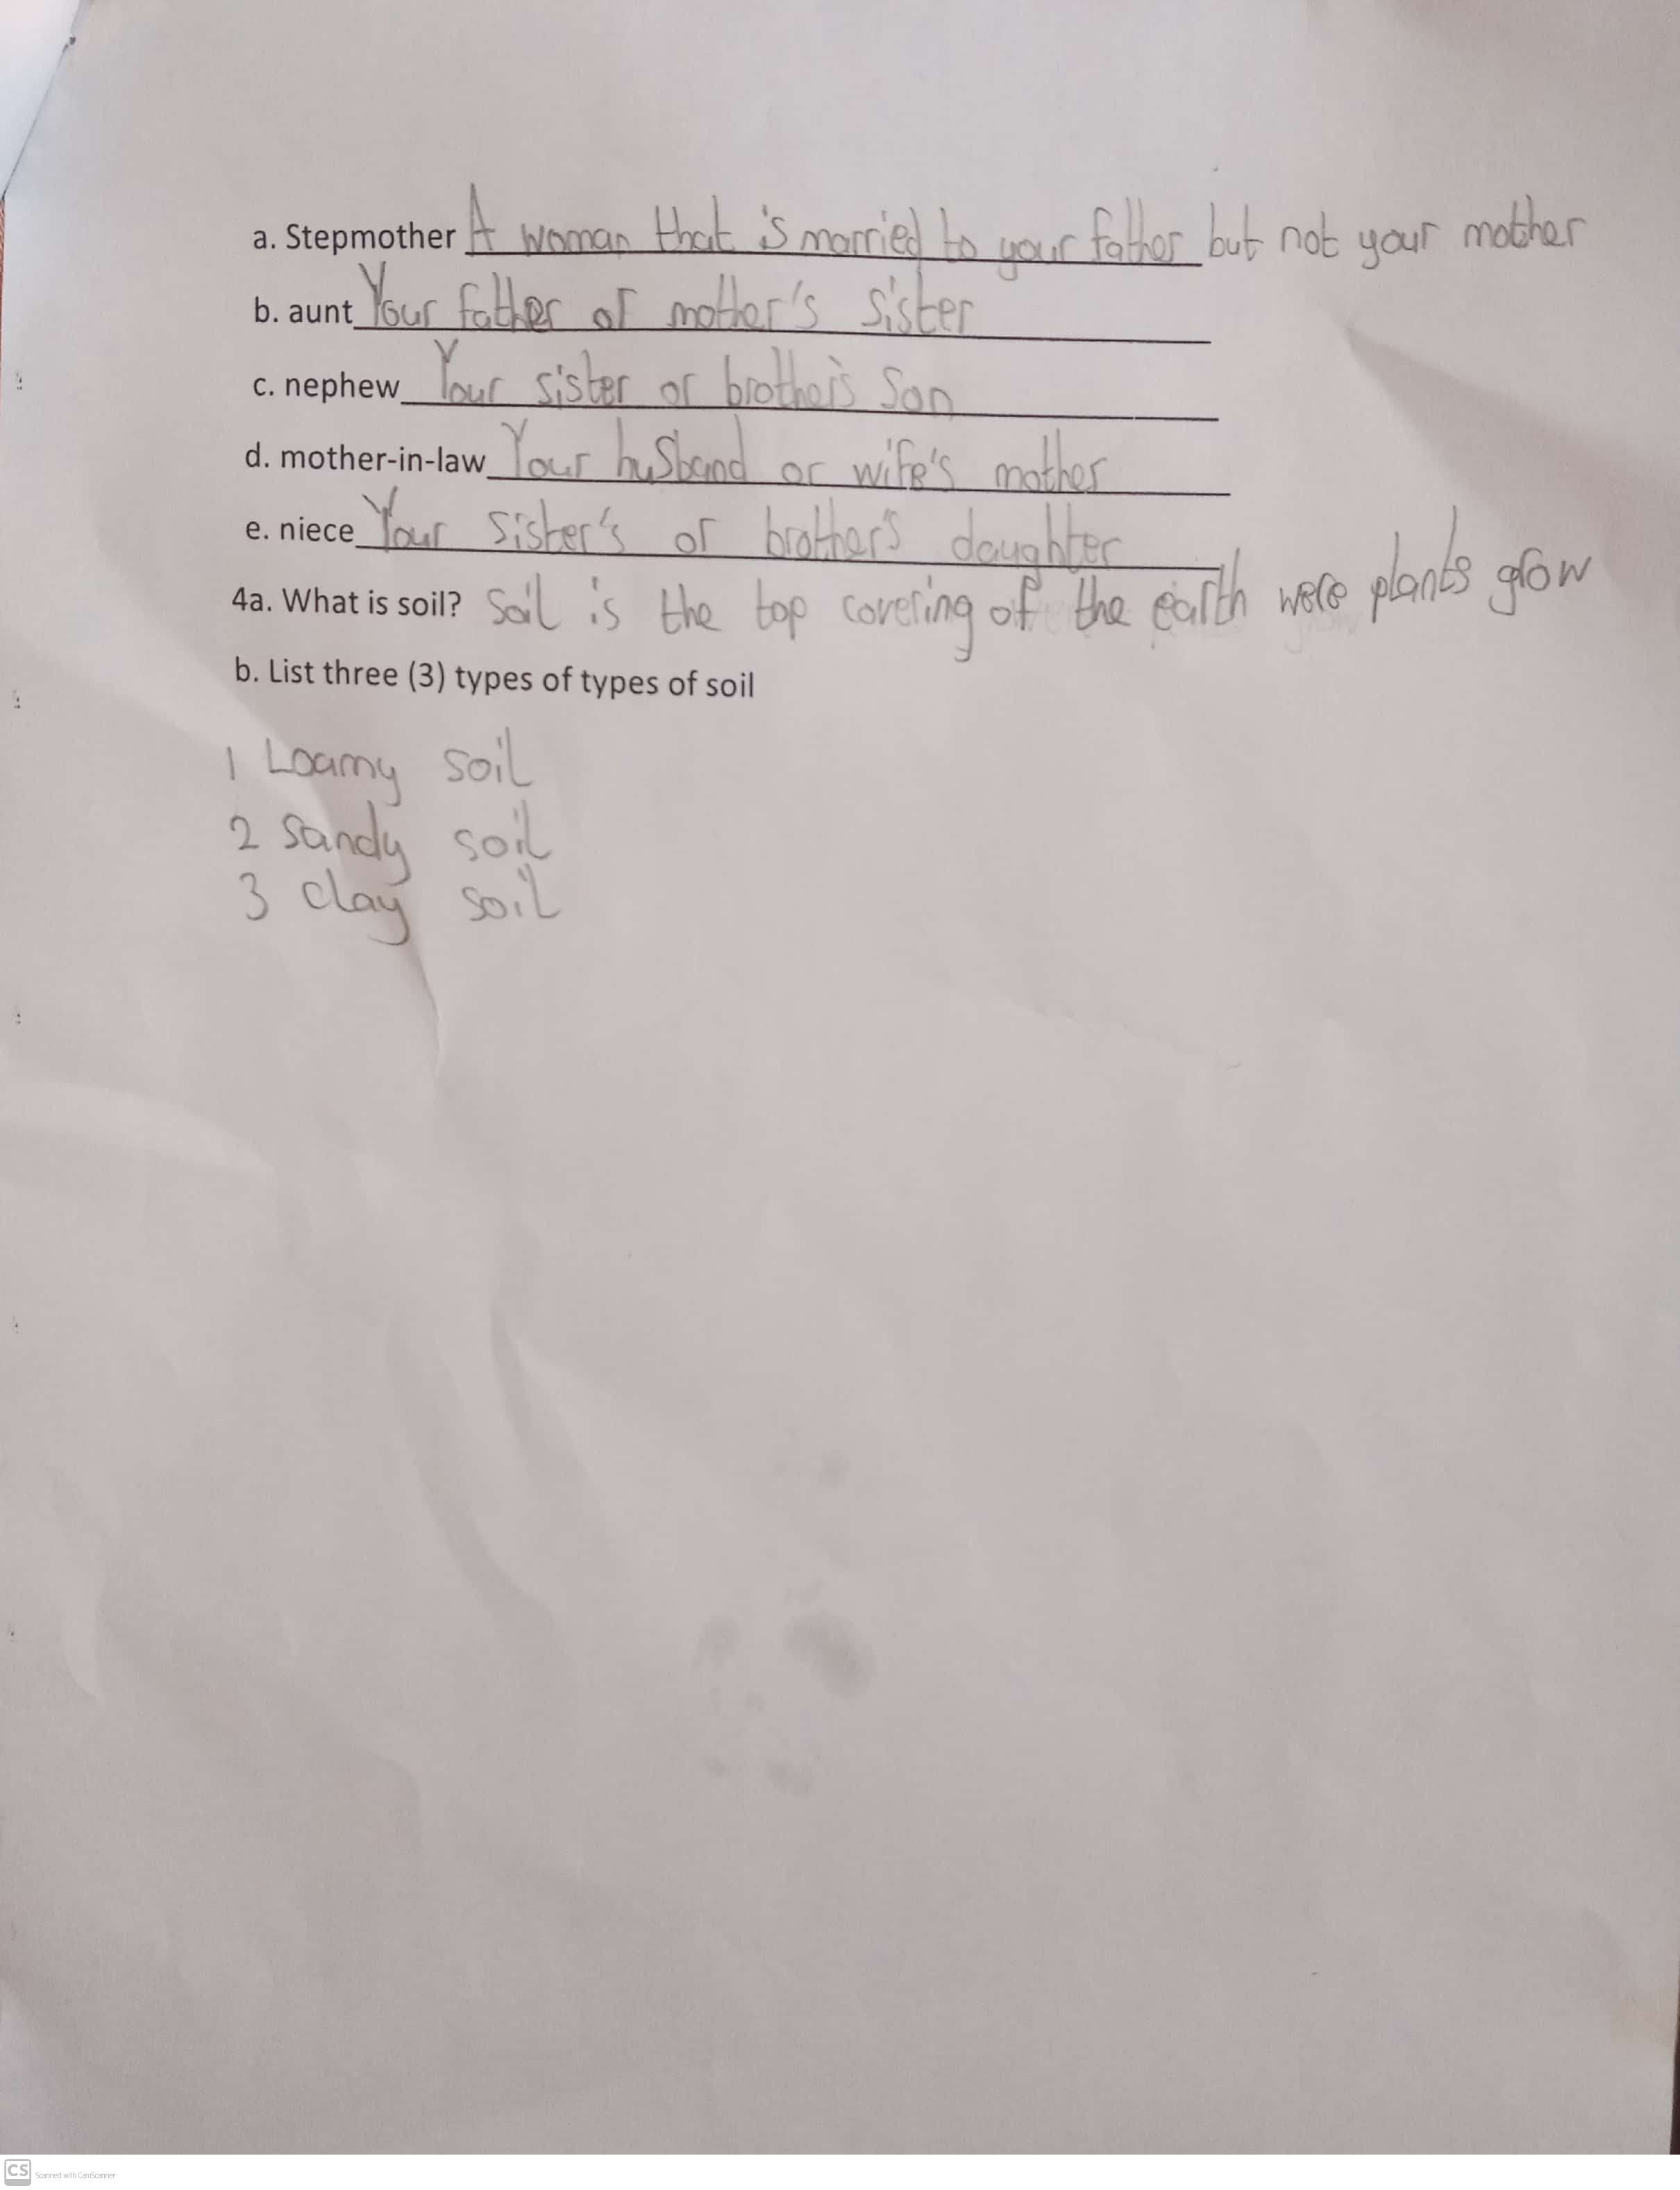 a. Stepmother A woman that is married to your father but not your mother
b. aunt Your father or mother's sister
c. nephew Your sister or brother's son
d. mother-in-law Your husband or wife's mother
e. niece Your sister's or brother's daughter
4a. What is soil? Soil is the top covering of the earth were plants grow
b. List three (3) types of types of soil
1 Loamy soil
2 Sandy soil
3 clay soil
CS Scanned with CamScanner